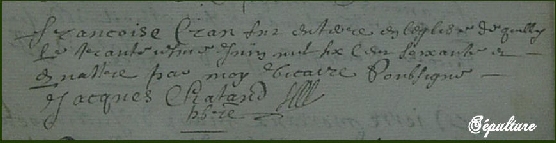 francoise Cran fut enterre en leglise de quilly
le trante iesme Juin mil six cen soixante et
quattre par moy vicaire soubsigne
Jacques Chatand
pbre
Sépulture